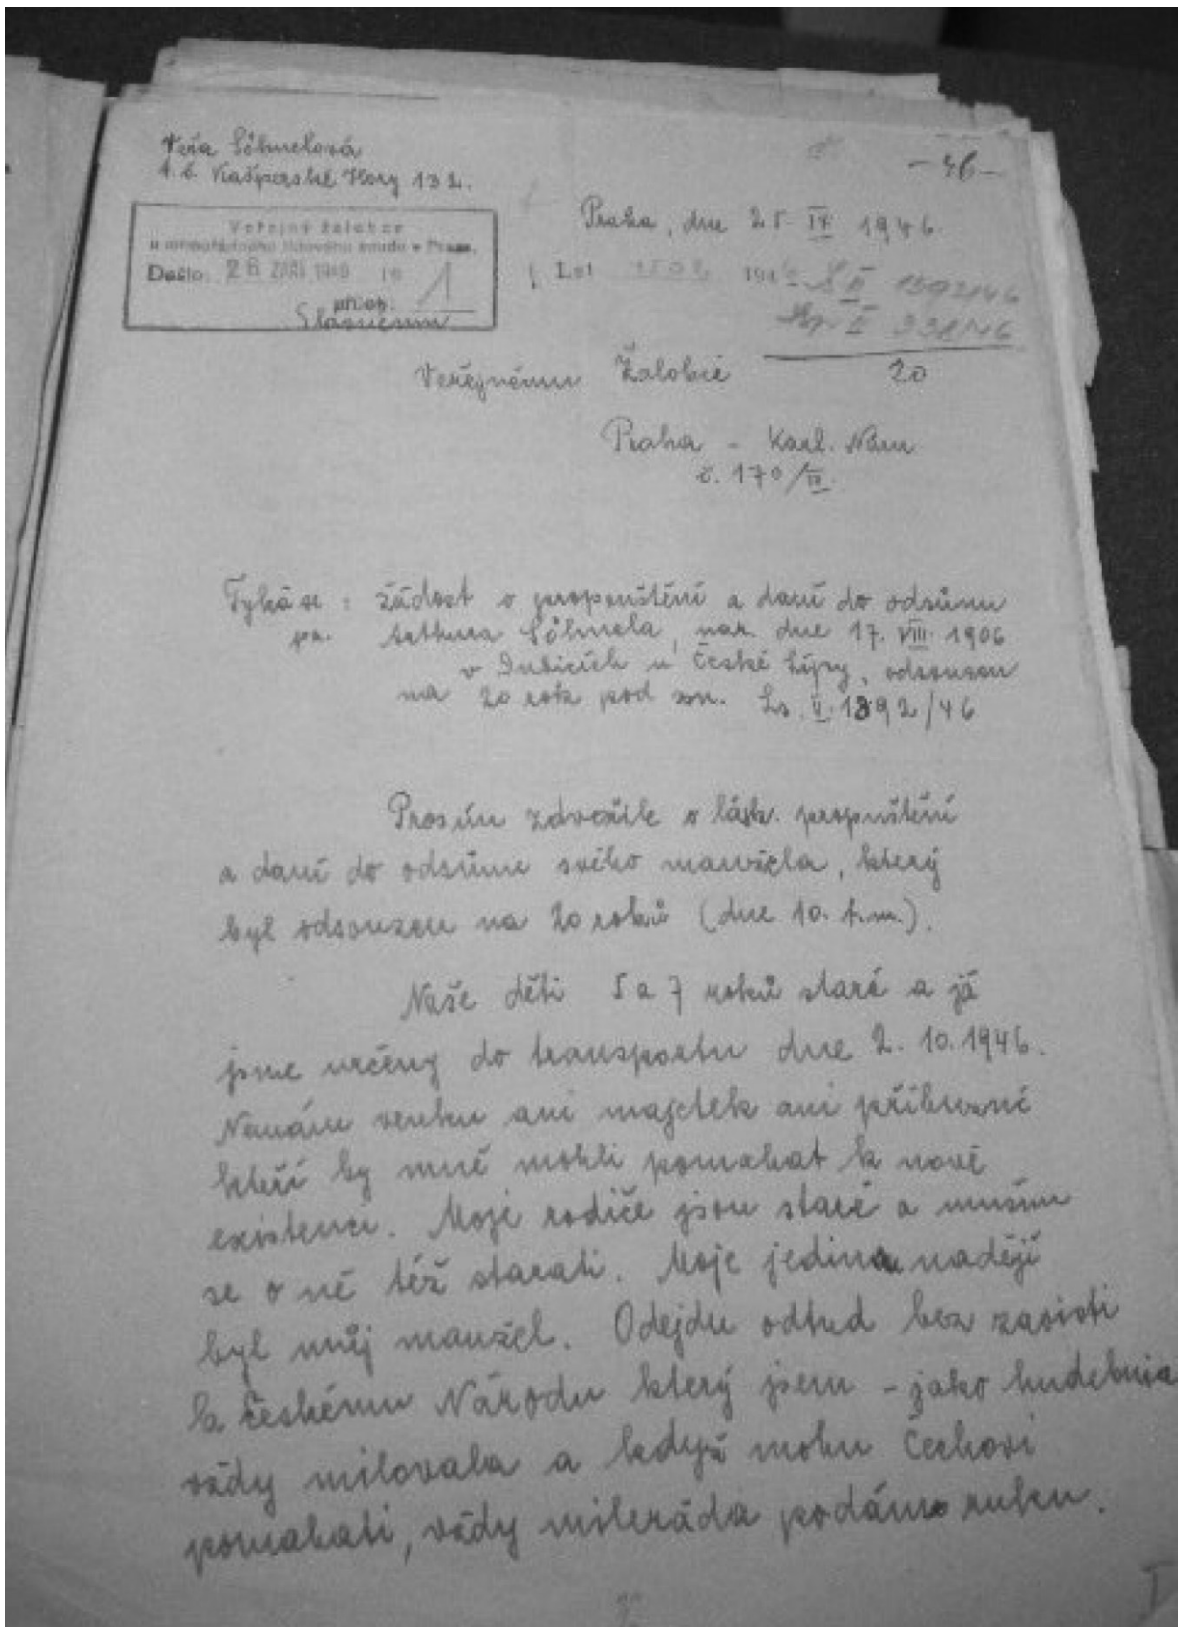 Věra Söhnelová
t. č. Kašperské Hory 132.
- 46 -
Praha, dne 25. IX 1946.
Veřejný žalobce
u mimořádného lidového soudu v Praze.
Došlo: 26 ZÁŘÍ 1946 19
příloh. 1
1946
20
Veřejnému Žalobci
Praha - Karl. Nám
č. 170/II.
Týká se: žádost o propuštění a daní do odsůnu
pa. Arthura Söhnela, nar. dne 17. VIII. 1906
v Dubicích u České Lípy, odsouzen
na 20 rok pod zn. Ls. V. 1392/46
Prosím zdvořile o lásk. propuštění
a daní do odsůnu svého manžela, který
byl odsouzen na 20 roků (dne 10. t.m.).
Naše děti 5 a 7 roků staré a já
jsme určeny do transportu dne 2. 10. 1946.
Nemám venku ani majetek ani příbuzné
kteří by mně mohli pomahat k nové
existenci. Moje rodiče jsou staré a musím
se o ně též starati. Moje jedinou nadějí
byl můj manžel. Odejdu odtud bez zaoisti
k českému Národu který jsem - jako hudebnice
vždy milovala a když mohu Čechovi
pomahati, vždy mileráda podám ruku.
I